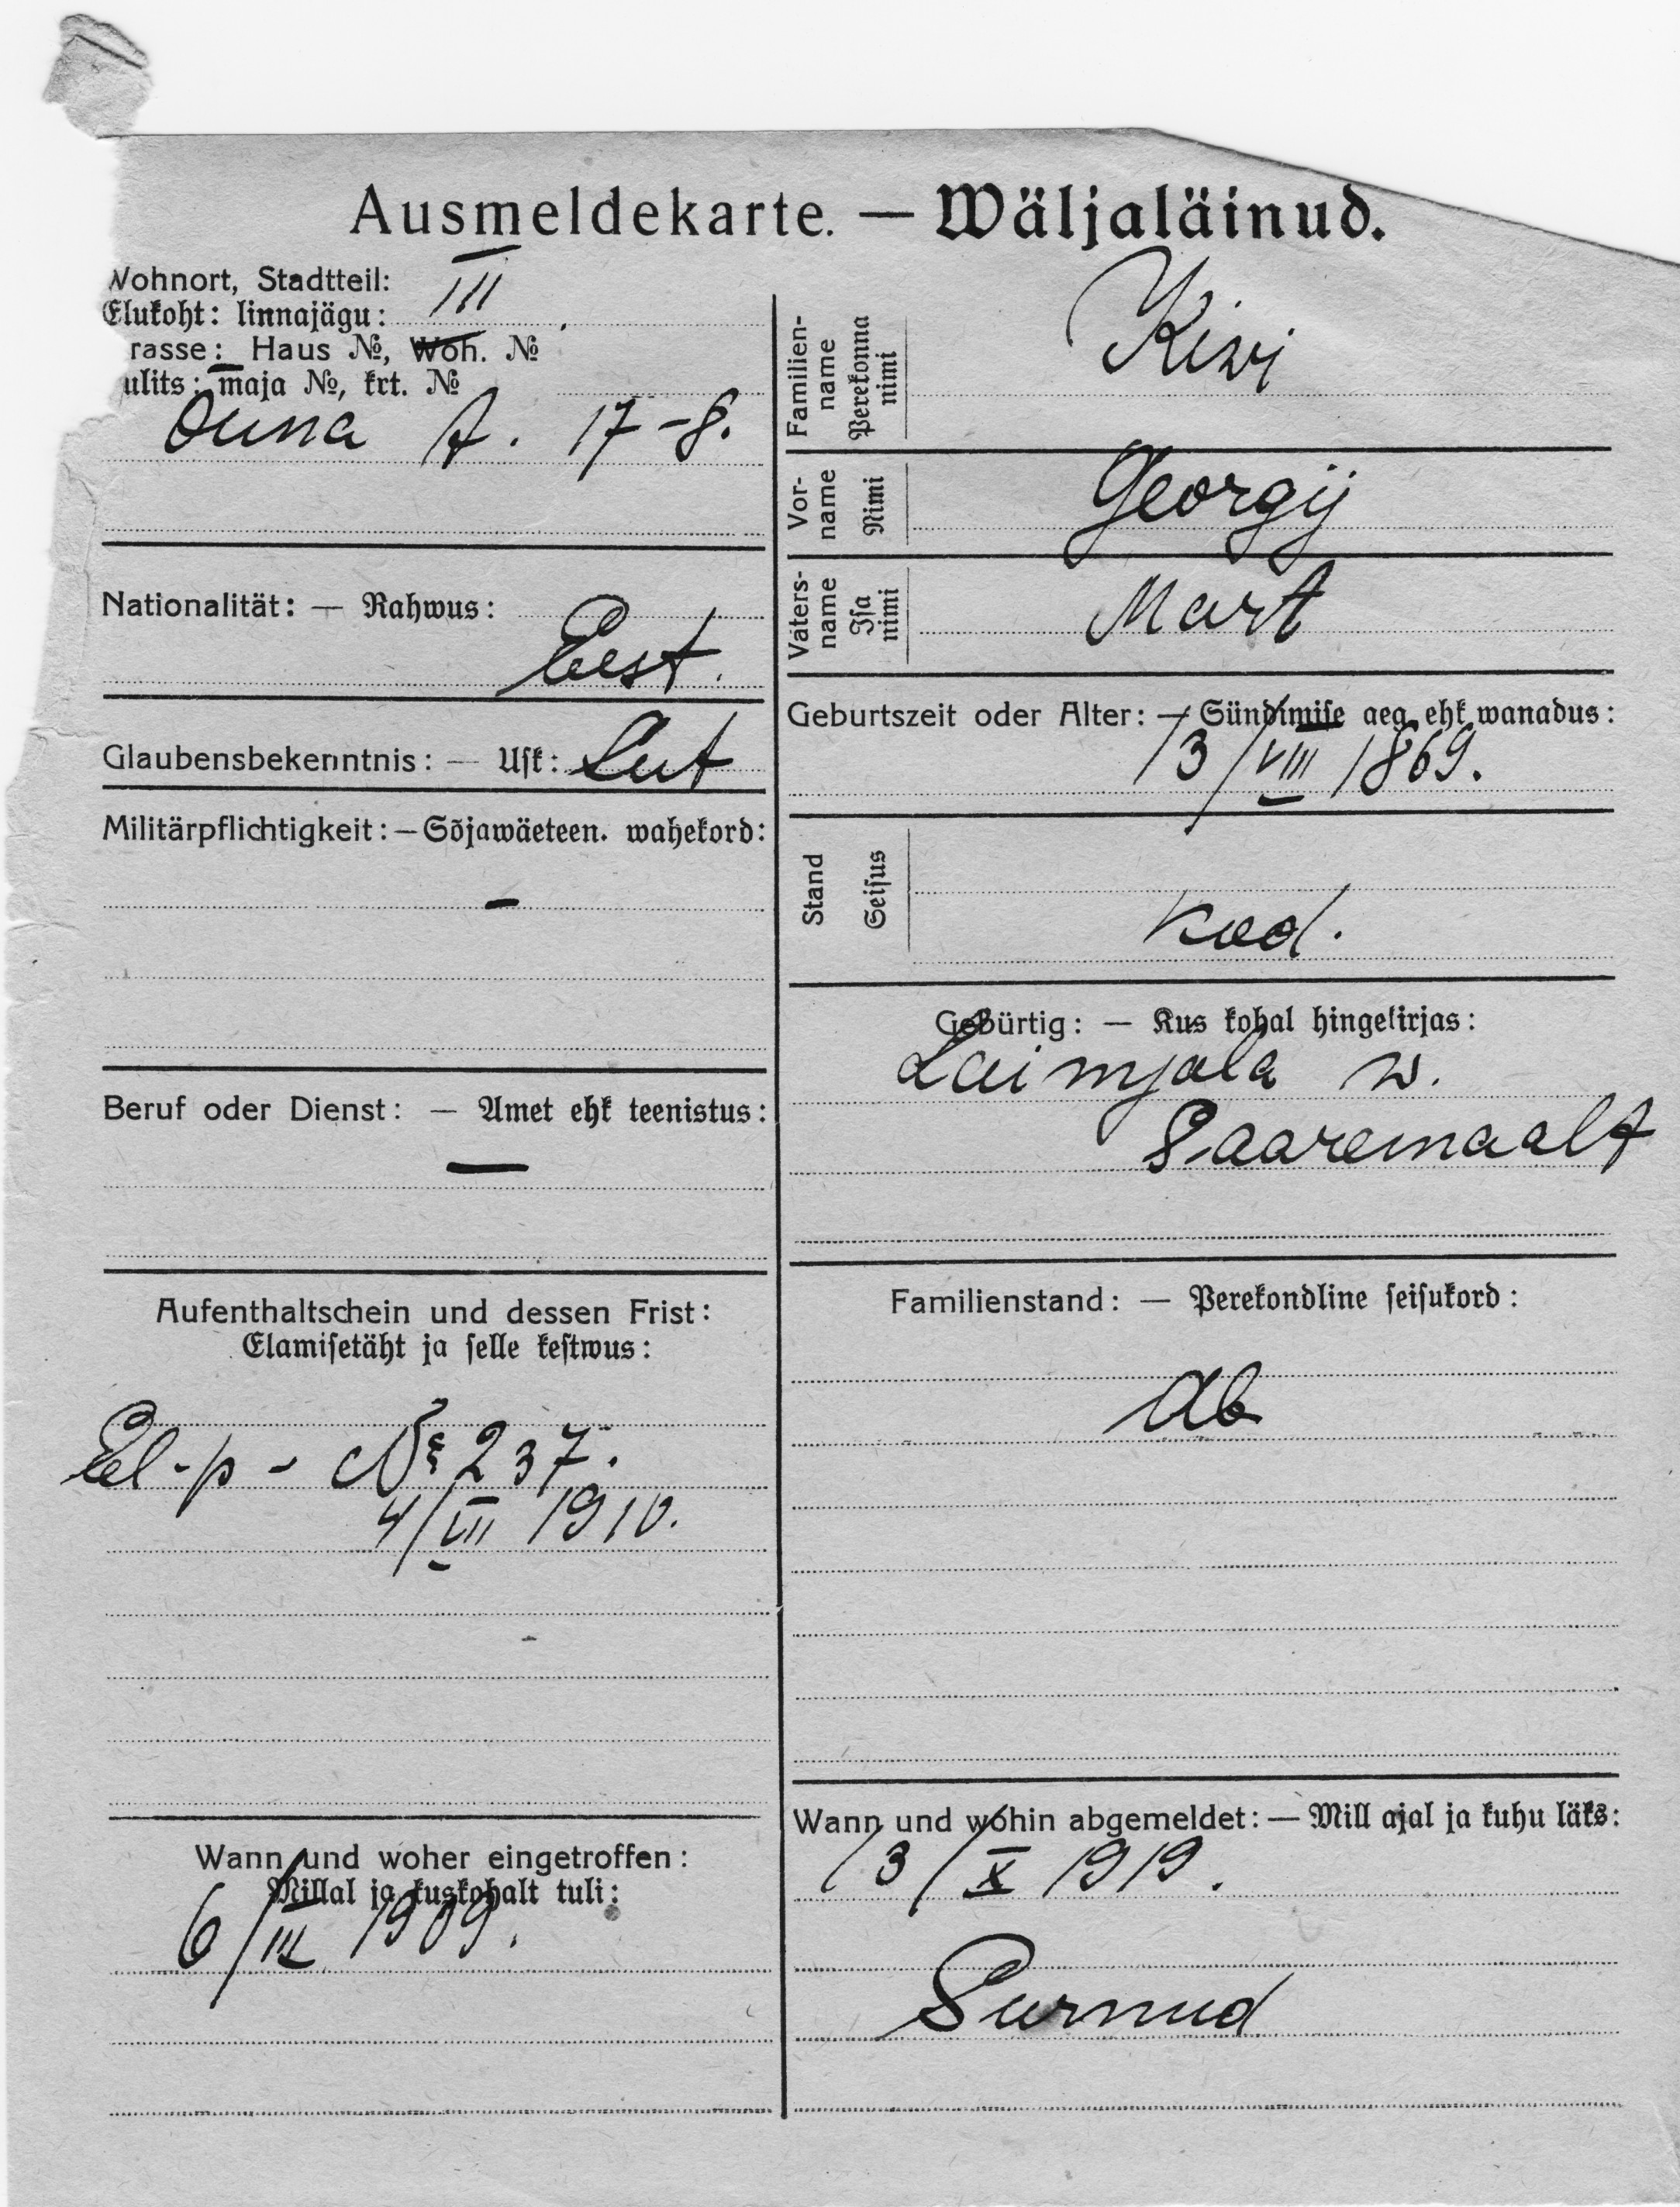 Ausmeldekarte. — Wäljaläinud.
Wohnort, Stadtteil:
Elukoht: linnajägu: III
rasse: Haus №, Woh. №
ulits: maja №, krt. №
Õuna t. 17-8.
Nationalität: — Rahwus:
Eest.
Glaubensbekenntnis: — Usk: Lut
Militärpflichtigkeit: — Sõjawäeteen. wahekord:
–
Beruf oder Dienst: — Amet ehk teenistus:
—
Aufenthaltschein und dessen Frist:
Elamisetäht ja selle kestwus:
El-p- № 237.
4/VII 1910.
Wann und woher eingetroffen:
Millal ja kuskohalt tuli:
6/III 1909.
Familien-
name
Perekonna
nimi
Kiwi
Vor-
name
Nimi
Georgij
Vaters-
name
Isa
nimi
Mart
Geburtszeit oder Alter: — Sündimise aeg ehk wanadus:
13/VIII 1869.
Stand
Seisus
Kod.
Gebürtig: — Kus kohal hingekirjas:
Laimjala w.
Saaremaalt
Familienstand: — Perekondline seisukord:
Ab
Wann und wohin abgemeldet: — Mill ajal ja kuhu läks:
13/X 1919.
Surnud